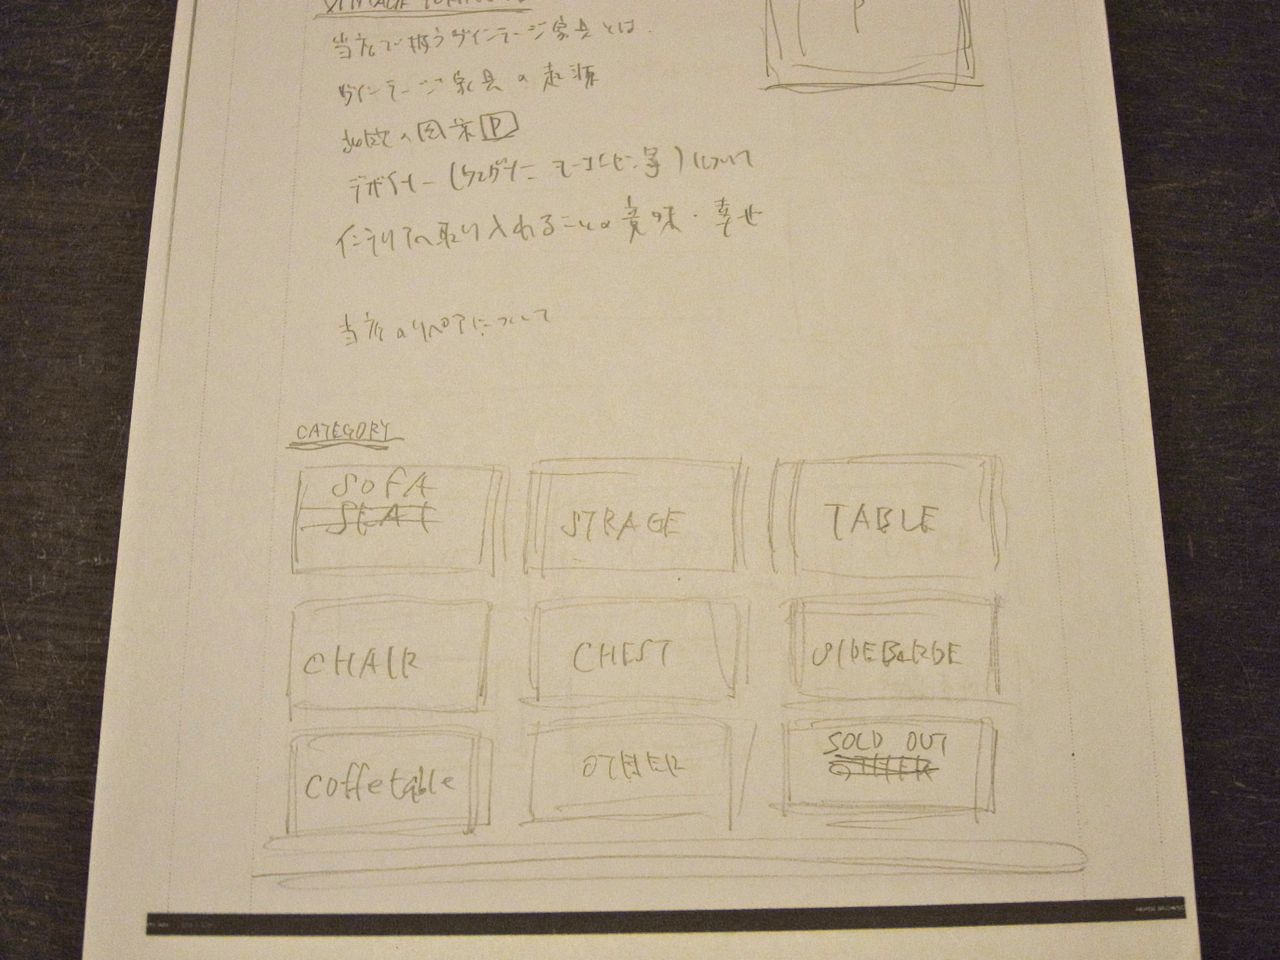 VINTAGE
P
当店で扱うヴィンテージ家具とは.
ヴィンテージ家具の起源
の図案 P
デザイナー(ウェグナー モーエンセン等)について
インテリアへ取り入れることの意味・幸せ
当店のリペアについて
CATEGORY
SOFA
SEAT
STRAGE
TABLE
CHAIR
CHEST
SIDEBARDE
coffetable
OTHER
SOLD OUT
OTHER